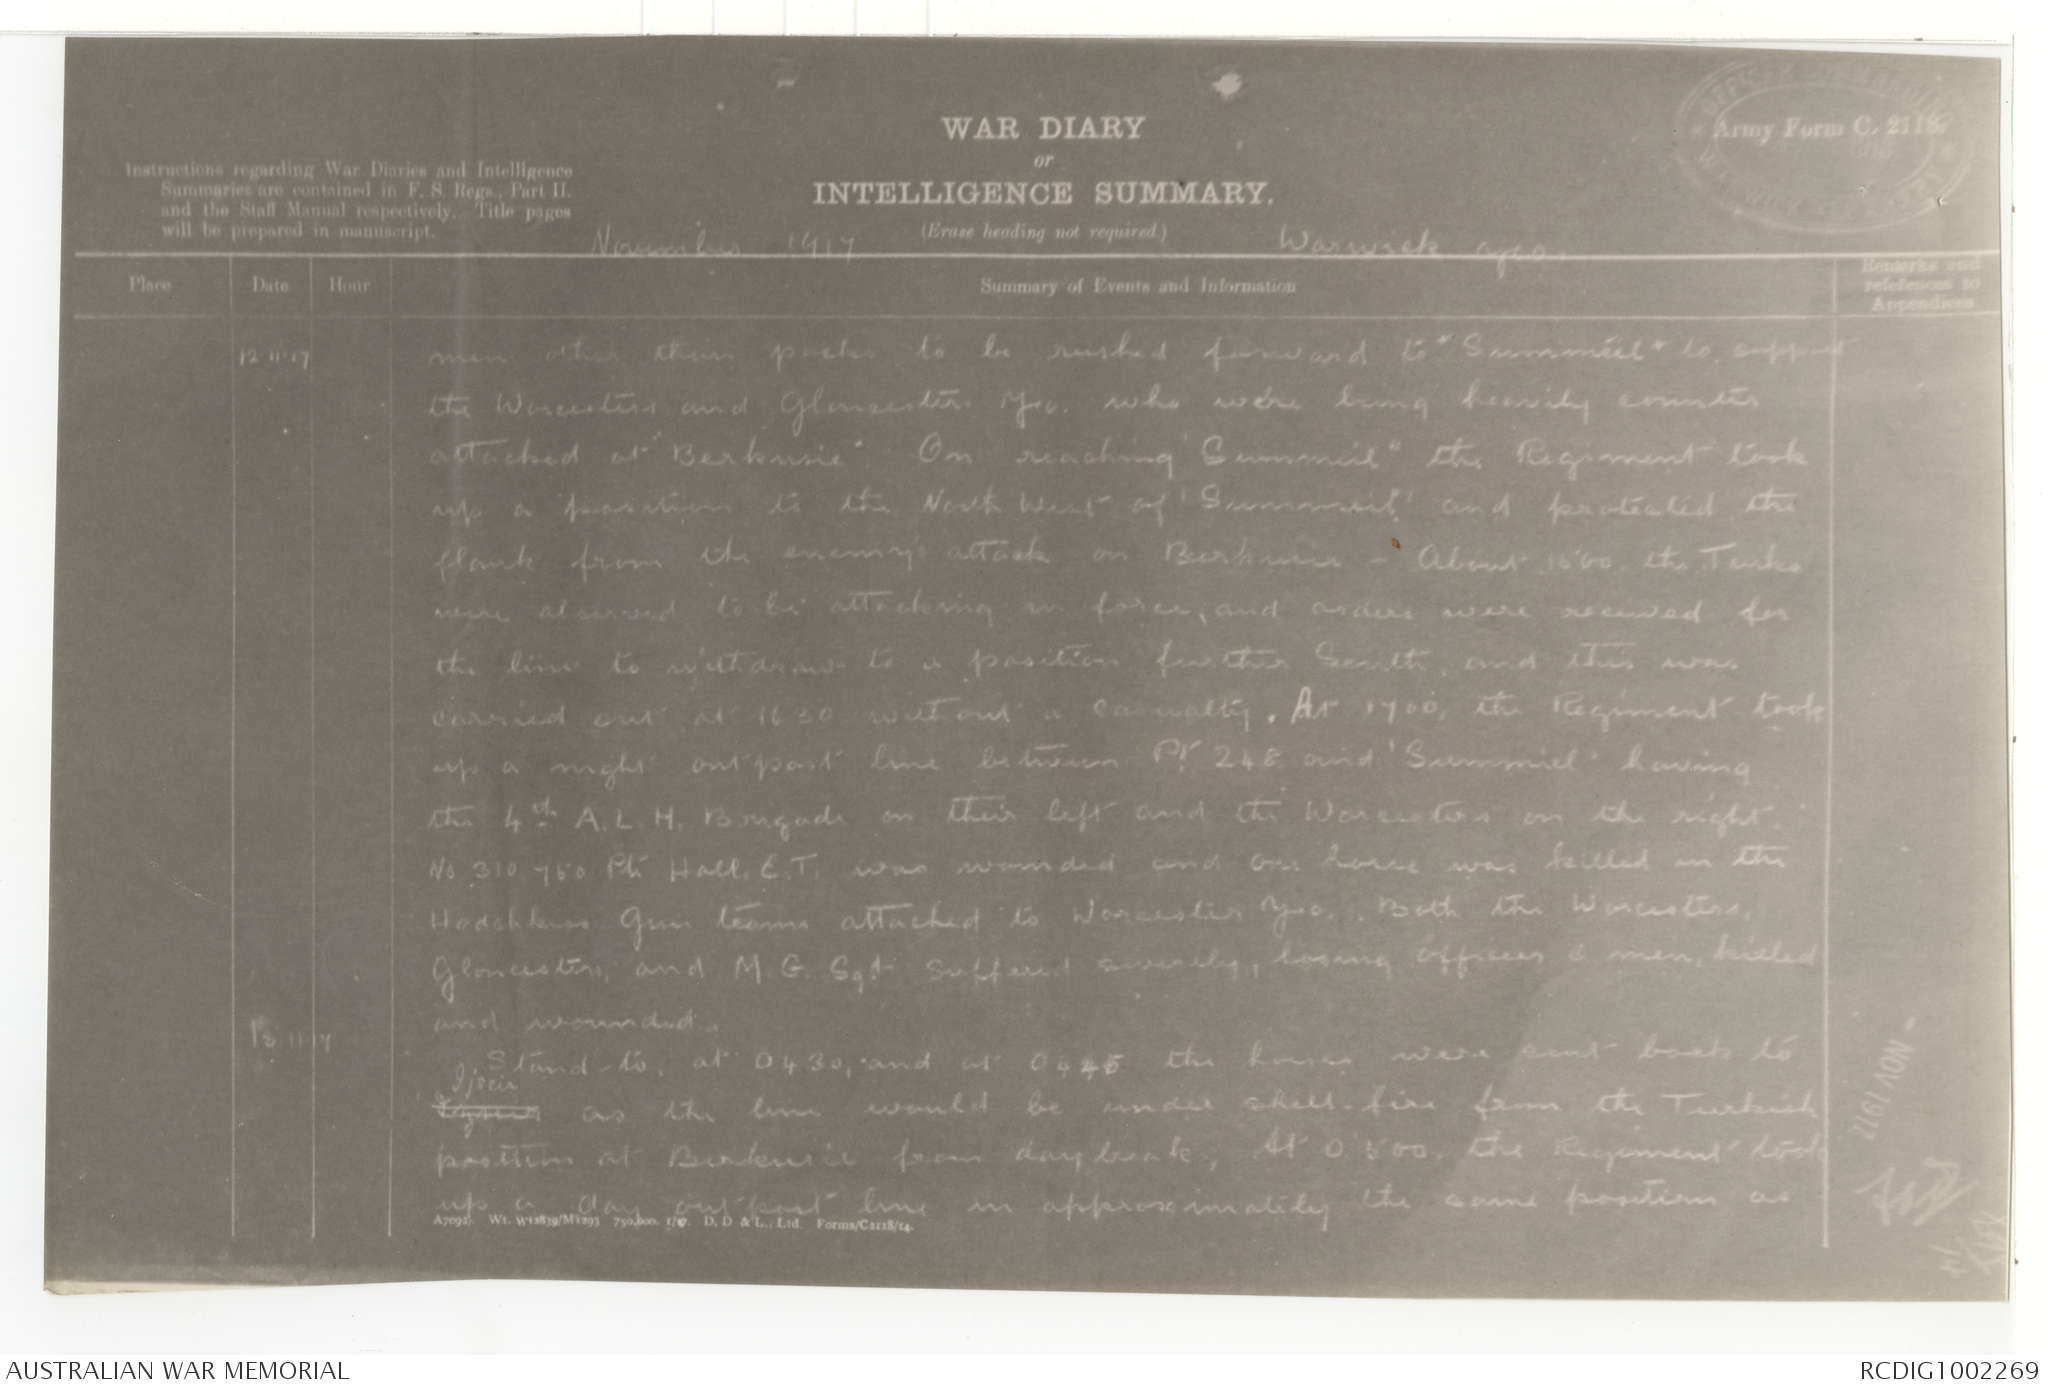 WAR DIARY
or
INTELLIGENCE SUMMARY.
(Erase heading not required.)
Army Form C. 2118.
Instructions regarding War Diaries and Intelligence
Summaries are contained in F. S. Regs., Part II.
and the Staff Manual respectively. Title pages
will be prepared in manuscript.
November 1917
Warwick Yeo.
Place
Date
Hour
Summary of Events and Information
Remarks and
references to
Appendices
12.11.17
men other their packs to be rushed forward to "Summeil" to support
the Worcesters and Gloucesters Yeo. who were being heavily counter
attacked at "Berkusie". On reaching "Summeil" the Regiment took
up a position to the North West of 'Summeil' and protected the
flank from the enemy's attack on Berkusie - About 1500 the Turks
were observed to be attacking in force, and orders were received for
the line to withdraw to a position further South, and this was
carried out at 1630 without a casualty. At 1700, the Regiment took
up a night outpost line between Pt 248 and 'Summiel' having
the 4th A.L.H. Brigade on their left and the Worcesters on the right.
No 310750 Pte Hall. E.T. was wounded and one horse was killed in the
Hodchkiss Gun teams attached to Worcester Yeo. Both the Worcesters,
Gloucesters, and M.G. Sqt suffered severely, losing officers & men, killed
and wounded.
13.11.17
Stand-to, at 0430, and at 0445 the horses were sent back to
Ijseir
as the line would be under shell-fire from the Turkish
position at Berkusie from daybreak, At 0500. the Regiment took
up a day outpost line in approximately the same position as
NOV 1917
A7092. Wt. W12839/M1293 750,000. 1/17. D. D & L., Ltd. Forms/C2118/14.
AUSTRALIAN WAR MEMORIAL
RCDIG1002269